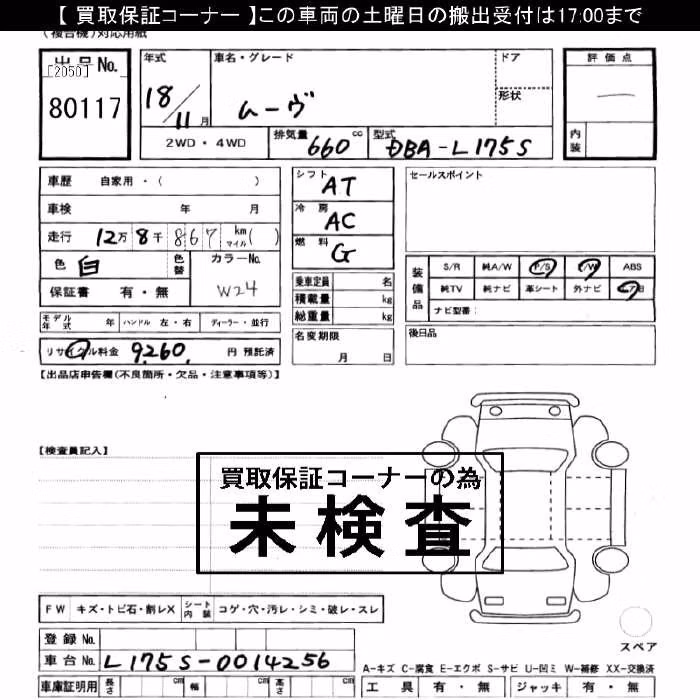 【 買取保証コーナー 】この車両の土曜日の搬出受付は17:00まで
(複合機)対応用紙
出品No.
[2050]
80117
年式
18/11月
車名・グレード
ムーヴ
ドア
形状
評価点
―
内装
2WD・4WD
排気量
660cc
型式
DBA-L175S
車歴 自家用・( )
車検 年 月
走行 12万8千867 km マイル( )
色 白
色替
カラーNo.
W24
保証書 有・無
シフト
AT
冷房
AC
燃料
G
セールスポイント
乗車定員 名
積載量 kg
総重量 kg
装備品
S/R 純A/W P/S P/W ABS
純TV 純ナビ 革シート 外ナビ
ナビ型番:
モデル年式 年 ハンドル 左・右 ディーラー・並行
名変期限
月 日
後日品
リサイクル料金 9,260. 円 預託済
【出品店申告欄(不良箇所・欠品・注意事項等)】
【検査員記入】
買取保証コーナーの為
未検査
FW キズ・トビ石・割レX シート内装 コゲ・穴・汚レ・シミ・破レ・スレ
スペア
登録No.
車台No. L175S-0014256
A-キズ C-腐食 E-エクボ S-サビ U-凹ミ W-補修 XX-交換済
車庫証明用 長さ cm 幅 cm 高さ cm
工具 有・無 ジャッキ 有・無